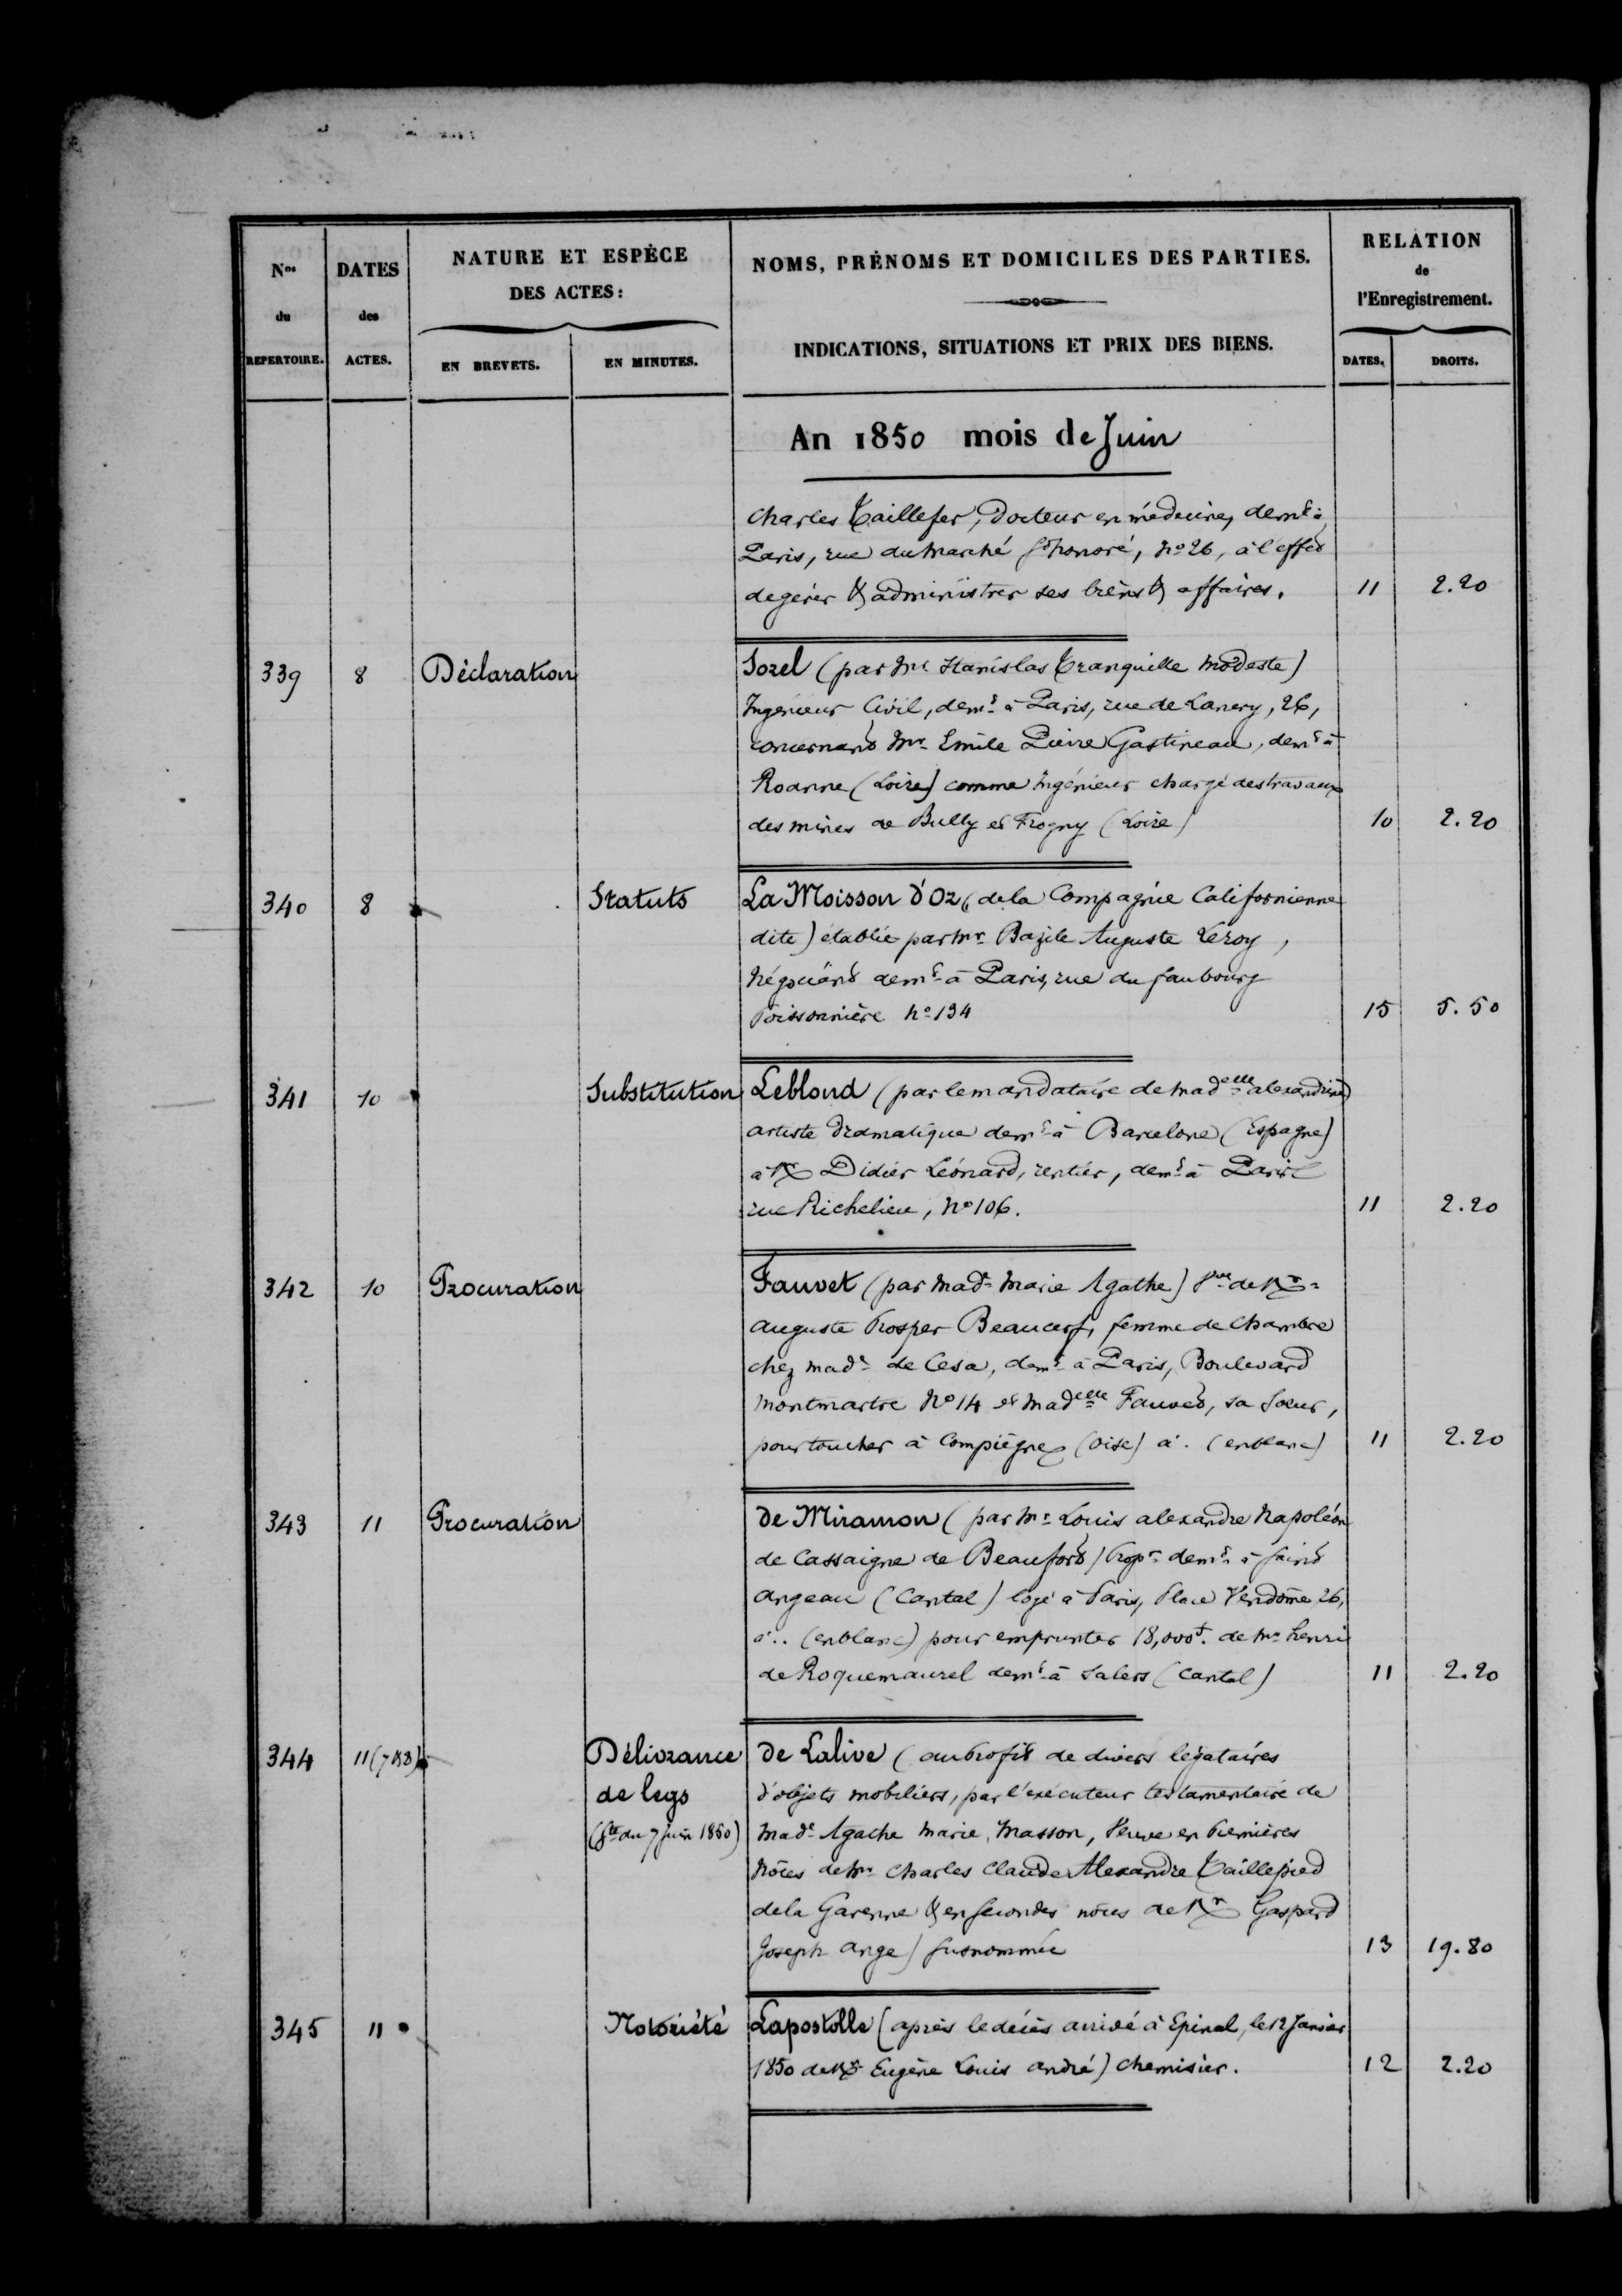 Nos
du
REPERTOIRE.
DATES
des
ACTES.
NATURE ET ESPÈCE
DES ACTES:
EN BREVETS.
EN MINUTES.
NOMS, PRÉNOMS ET DOMICILES DES PARTIES.
INDICATIONS, SITUATIONS ET PRIX DES BIENS.
RELATION
de
l'Enregistrement.
DATES.
DROITS.
An 1850 mois de Juin
Charles Taillefer, Docteur en médecine, demt à
Paris, rue du Marché St honoré, No 26, à l'effet
de gérer & administrer ses biens & affaires. 11 2.20
339 8 Déclaration Sorel (par Mr Stanislas Tranquille Modeste)
Ingénieur Civil, demt à Paris, rue de Lancry, 26,
concernant Mr Emile Pierre Gastineau, demt à
Roanne (Loire) comme Ingénieur chargé des travaux
des mines de Bully et Frogny (Loire) 10 2.20
340 8 Statuts La Moisson d'Or (de la Compagnie Californienne
dite) établie par Mr Bazile Auguste Leroy,
Négociant demt à Paris, rue du faubourg
Poissonnière No 134 15 5.50
341 10 Substitution Leblond (par le mandataire de Madelle alexandrine)
artiste dramatique demt à Barcelone (Espagne)
à Mr Didier Léonard, rentier, demt à Paris
rue Richelieu, No 106. 11 2.20
342 10 Procuration Fauvet (par Made Marie Agathe) Vve de Mr
auguste Prosper Beaucerf, femme de Chambre
chez Made de Cesa, demt à Paris, Boulevard
Montmartre No 14 et Madelle Fauvet, sa Soeur,
pour toucher à Compiègne (Oise) à . (en blanc) 11 2.20
343 11 Procuration de Miramon (par Mr Louis alexandre Napoléon
de Cassaigne de Beaufort) Propre demt à Saint
angeau (Cantal) logé à Paris, Place Vendôme 26,
à .. (en blanc) pour emprunter 18,000f. de Mr henri
de Roquemaurel demt à Salers (Cantal) 11 2.20
344 11 (7 &8) Délivrance de Lalive (au profit de divers légataires
de legs d'objets mobiliers, par l'exécuteur testamentaire de
(Ste du 7 Juin 1850) Made Agathe Marie Masson, Veuve en Premières
Nôces de Mr Charles Claude Alexandre Taillepied
de la Garenne & en secondes nôces de Mr Gaspard
Joseph ange) susnommée 13 19.80
345 11 Notoriété Lapostolle (après le décès arrivé à Epinal, le 12 Janvier
1850 de Mr Eugène Louis andré) chemisier. 12 2.20